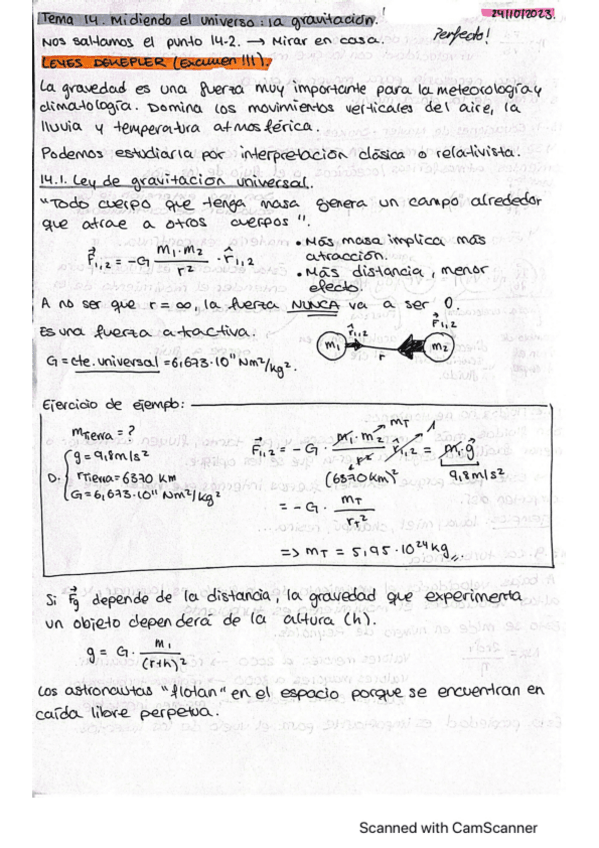 Tema 14. Midiendo el universo: la gravitación.
24/10/2023.
Nos saltamos el punto 14-2. → Mirar en casa. Perfecto!
LEYES DE KEPLER (Examen!!!).
La gravedad es una fuerza muy importante para la meteorología y
climatología. Domina los movimientos verticales del aire, la
lluvia y temperatura atmosférica.
Podemos estudiarla por interpretación clásica o relativista.
14.1. Ley de gravitación universal.
"Todo cuerpo que tenga masa genera un campo alrededor
que atrae a otros cuerpos".
F⃗1,2 = -G m1·m2 / r² · r̂1,2
• Más masa implica más
atracción.
• Más distancia, menor
efecto.
A no ser que r = ∞, la fuerza NUNCA va a ser 0.
Es una fuerza atractiva.
r̂1,2 F⃗1,2
m1 r m2
G = cte. universal = 6,673·10¯¹¹ Nm²/kg².
Ejercicio de ejemplo:
mTierra = ?
D. g = 9,8 m/s²
rTierra = 6370 km
G = 6,673·10¯¹¹ Nm²/kg²
F⃗1,2 = -G · m1·m2 / r² · r̂1,2 = m1·g⃗
mT 1
(6370 km)² 9,8 m/s²
= -G · mT / rT²
=> mT = 5,95·10²⁴ kg
Si F⃗g depende de la distancia, la gravedad que experimenta
un objeto dependerá de la altura (h).
g = G · m1 / (r+h)²
Los astronautas "flotan" en el espacio porque se encuentran en
caída libre perpetua.
Scanned with CamScanner